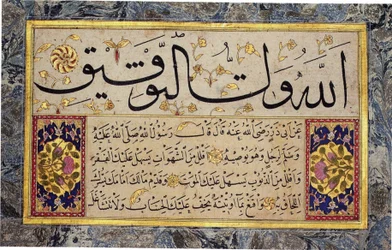 الله ولي التوفيق
عن ابي ذر رضي الله عنه قال قال رسول الله صلى الله عليه
وسلم لرجل وهو يوصيه اقلل من الشهوات يسهل عليك الفقر
واقلل من الذنوب يسهل عليك الموت وقدم مالك امامك يسرك
اللحاق به واقنع بما اوتيته يخف عليك الحساب ولا تتشاغل